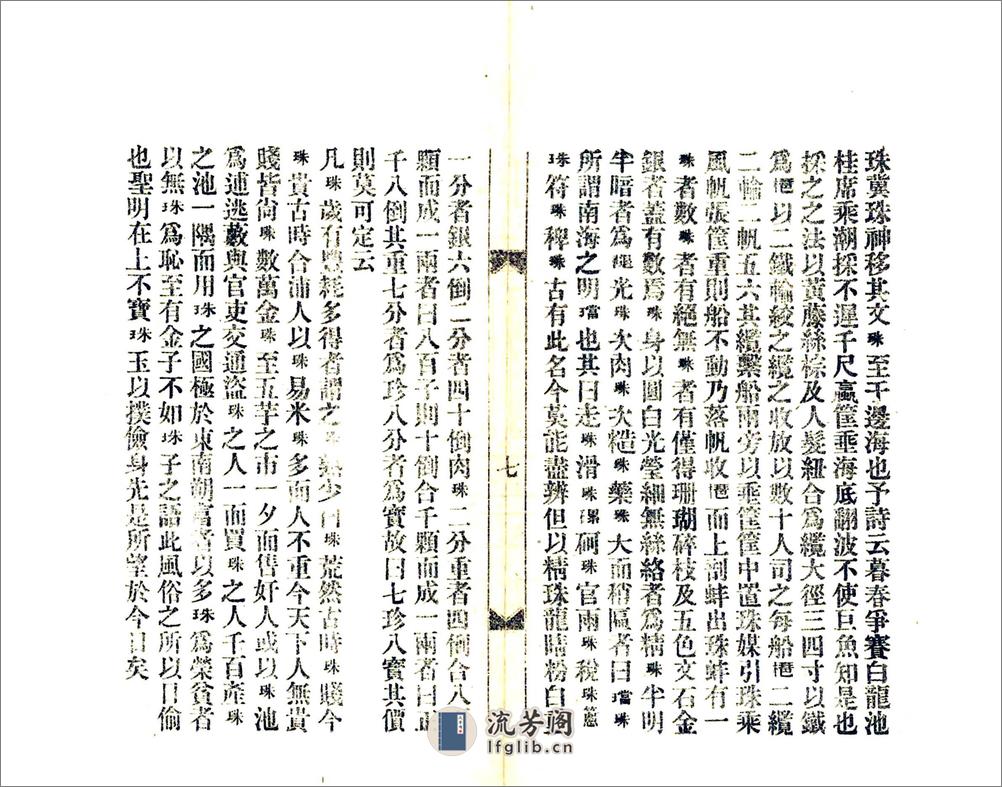 珠冀珠神移其文珠至干邊海也予詩云暮春爭賽白龍池
桂席乘潮採不遲千尺瀛筐垂海底翻波不使巨魚知是也
採之之法以黃藤絲棕及人髮紐合為纜大徑三四寸以鐵
為𦀠以二鐵輪絞之纜之收放以數十人司之每船𦀠二纜
二輪二帆五六其纜繫船兩旁以乘筐筐中置珠媒引珠乘
風帆張筐重則船不動乃落帆收𦀠而上剖蚌出珠蚌有一
珠者數珠者有絕無珠者有僅得珊瑚碎枝及五色文石金
銀者蓋有數焉珠身以圓白光瑩細無絲絡者為精珠半明
半暗者為褪光珠次肉珠次糙珠藥珠大而稍匾者曰璫珠
所謂南海之明璫也其曰走珠滑珠磥砢珠官雨珠稅珠蔥
珠符珠稗珠古有此名今莫能盡辨但以精珠龍睛粉白
七
一分者銀六倒二分者四十倒肉珠二分重者四倒合八
顆而成一兩者曰八百子則十倒合千顆而成一兩者曰正
千八倒其重七分者為珍八分者為寶故曰七珍八寶其價
則莫可定云
凡珠歲有豐耗多得者謂之珠熟少曰珠荒然古時珠賤今
珠貴古時合浦人以珠易米珠多而人不重今天下人無貴
賤皆尚珠數萬金珠至五羊之市一夕而售奸人或以珠池
為逋逃藪與官吏交通盜珠之人一而買珠之人千百產珠
之池一隅而用珠之國極於東南朔富者以多珠為榮貧者
以無珠為恥至有金子不如珠子之語此風俗之所以日偷
也聖明在上不寶珠玉以撲儉身先是所望於今日矣
流芳閣
lfglib.cn